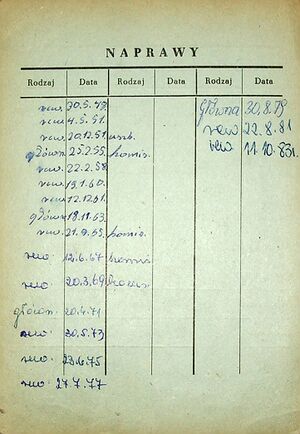 NAPRAWY
Rodzaj Data Rodzaj Data Rodzaj Data
rew. 30.5.49 główna 30.8.79
rew 4.5.51. rew 22.8.81
rew. 20.12.51 rew 11.10.83r.
główn 25.2.55 komis.
rew. 22.2.58
rew. 19.1.60.
rew. 12.12.61.
główn 18.11.63.
rew. 21.9.65 komis.
rew. 12.6.67 komis
rew. 20.3.69
główn. 20.4.71
rew. 30.5.73
rew. 23.6.75
rew 27.7.77